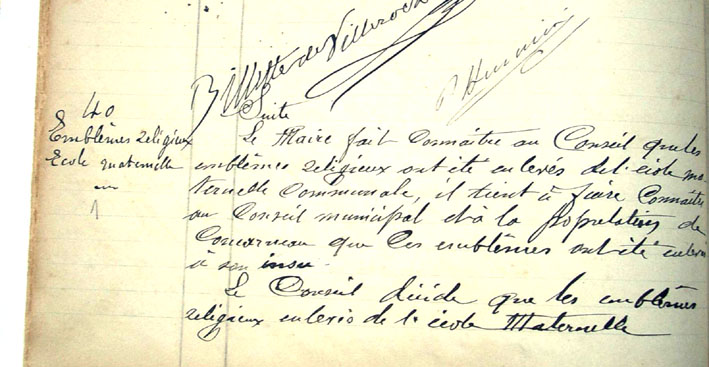 Billette de Villeroche
Suite
40
Emblèmes religieux
Ecole maternelle
1
Le Maire fait connaître au Conseil que les
emblèmes religieux ont été enlevés de l'école ma
ternelle communale, il tient à faire connaître
au Conseil municipal et à la population de
Concarneau que ces emblèmes ont été enlevés
à son insu.
Le Conseil décide que les emblèmes
religieux enlevés de l'école Maternelle